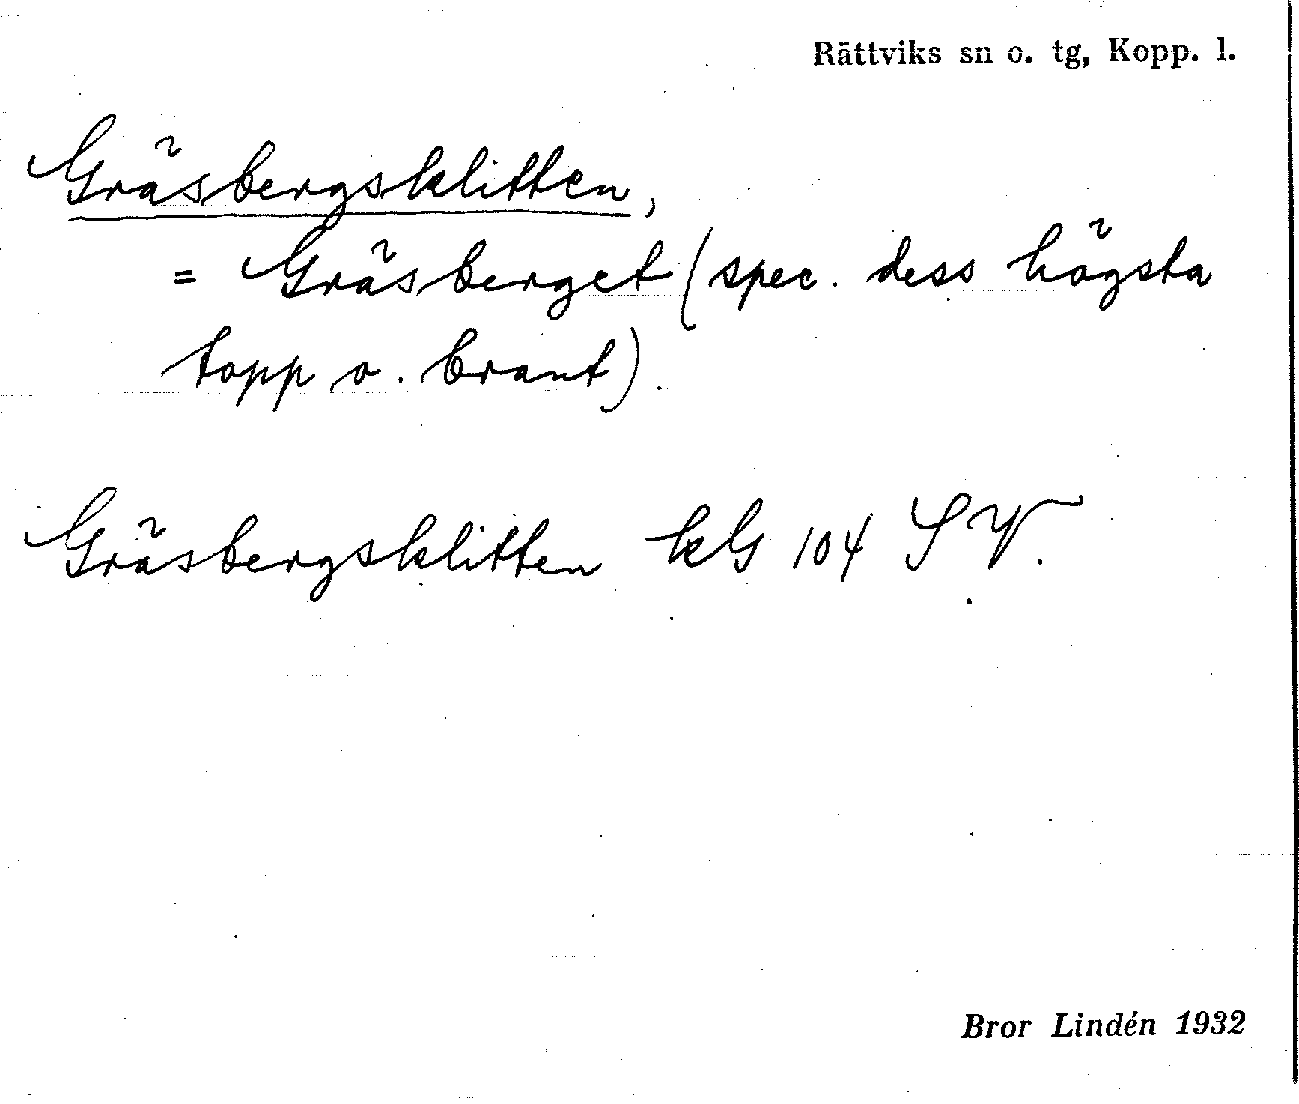 Rättviks sn o. tg, Kopp. l.
Gräsbergsklitten,
= Gräsberget (spec. dess högsta
topp o. brant).
Gräsbergsklitten kG 104 SV.
Bror Lindén 1932